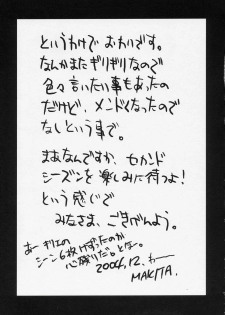 というわけで おわりです。
なんかまたギリギリなので
色々言いたい事もあったの
だけど、メンドくなったので
なしという事で。
まあなんですか、セカンド
シーズンを楽しみに待つよ!
という感じで
みなさま、ごきげんよう。
あー
シーン6枚けずったのが
心残りだ。とな。
2004.12.
MAKITA.